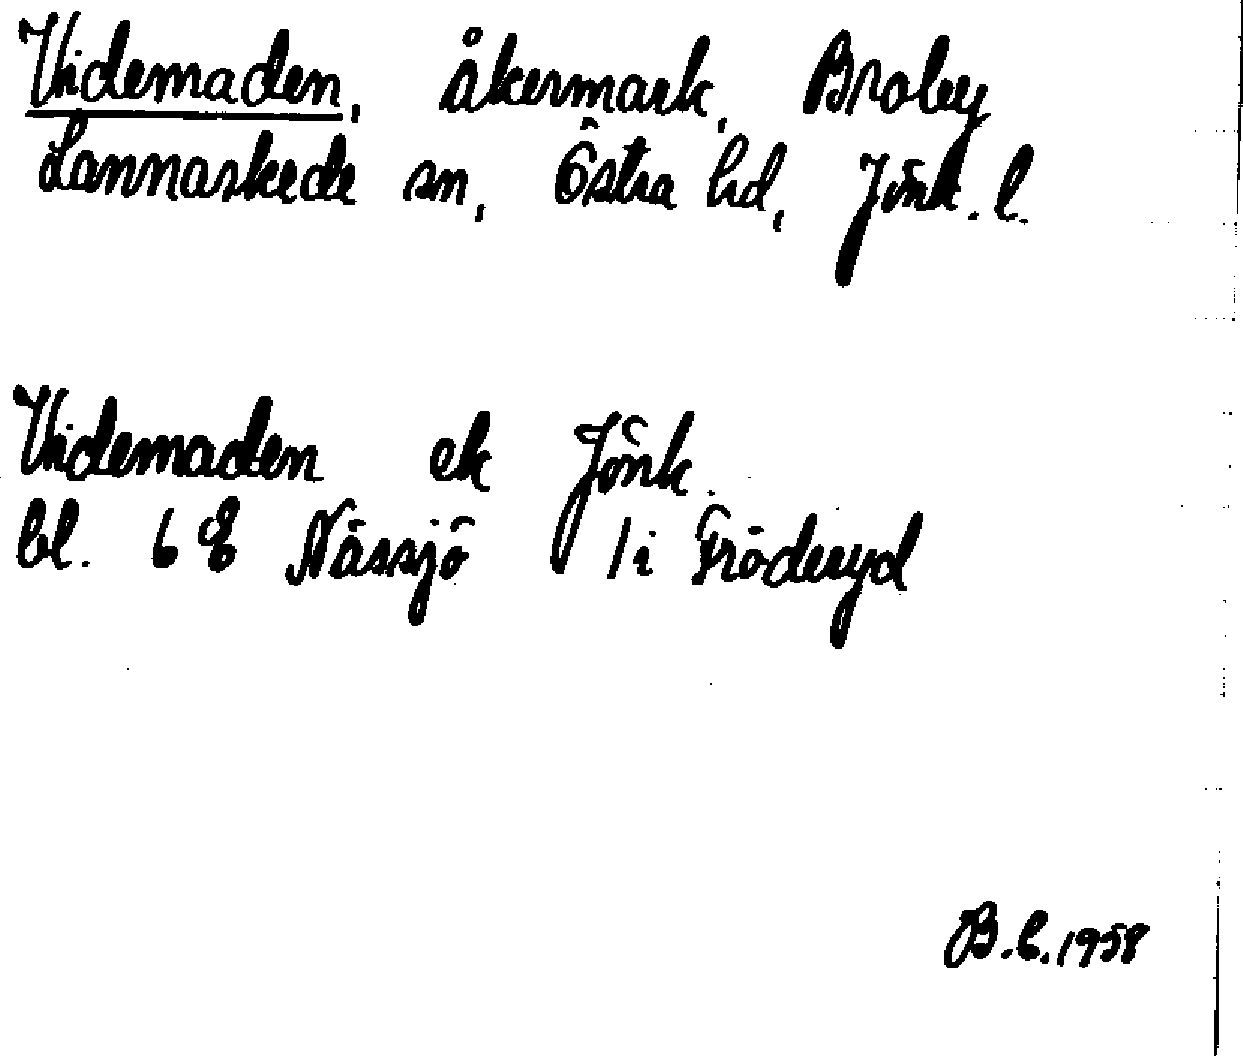 Videmaden, åkermark, Broby
Lannaskede sn, Östra hd, Jönk. l.
Videmaden ek Jönk.
bl. 6 E Nässjö 1 i Fröderyd
B.C. 1958